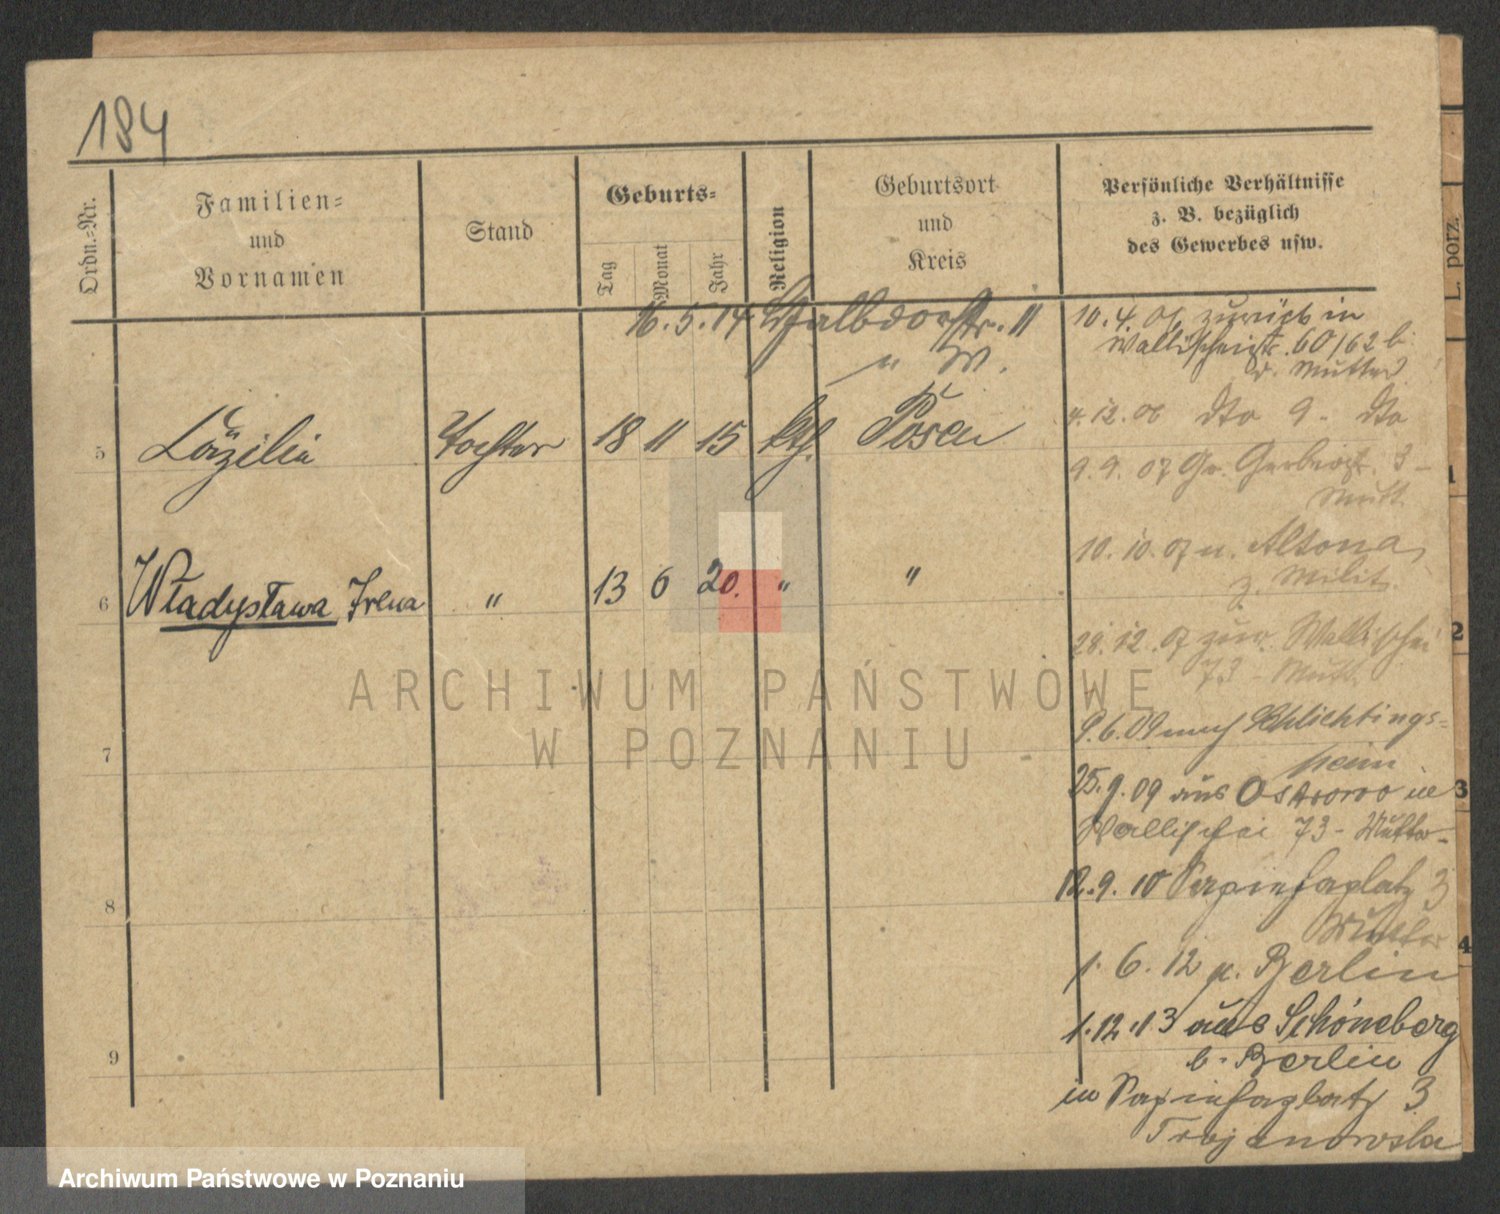 184
Ordn.=Nr.
Familien=
und
Vornamen
Stand
Geburts=
Tag
Monat
Jahr
Religion
Geburtsort
und
Kreis
Persönliche Verhältnisse
z. B. bezüglich
des Gewerbes usw.
L. porz.
16. 5. 14 11
10. 4. 06 zurück in
Wallischeistr. 60/62 b.
d. Mutter
5 Cäzilie Tochter 18 11 15 kth. Posen
4. 12. 06 dto 9 - dto
9. 9. 07 Gr. Gerberstr. 3 -
Mutt.
6 Władysława Irena " 13 6 20. " "
10. 10. 07 n. Altona
z. Milit.
28. 12. 07 zur. Wallischei
73 - Mutt.
7
9. 6. 09 nach Schlichtings=
heim
25. 9. 09 aus Ostrowo in
Wallischei 73 - Mutter -
8
12. 9. 10 Sapiehaplatz 3
Mutter
1. 6. 12 n. Berlin
9
1. 12. 13 aus Schöneberg
b. Berlin
in Sapiehaplatz 3
Trojanowska
1
2
3
4
ARCHIWUM PAŃSTWOWE
W POZNANIU
Archiwum Państwowe w Poznaniu